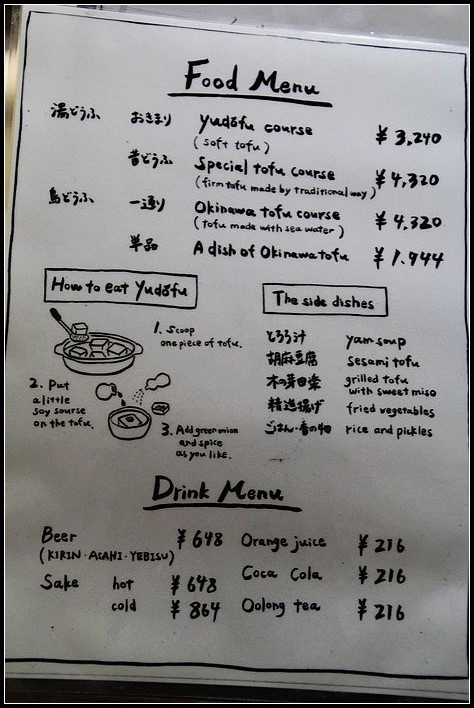 Food Menu
湯どうふ おきまり Yudōfu course ¥3,240
(soft tofu)
昔どうふ Special tofu course ¥4,320
(firm tofu made by traditional way)
島どうふ 一通り Okinawa tofu course ¥4,320
(tofu made with sea water)
単品 A dish of Okinawa tofu ¥1,944
How to eat Yudōfu
1. Scoop
one piece of tofu.
2. Put
a little
soy sourse
on the tofu.
3. Add green onion
and spice
as you like.
The side dishes
とろろ汁 yam soup
胡麻豆腐 sesami tofu
木の芽田楽 grilled tofu
with sweet miso
精進揚げ fried vegetables
ごはん・香の物 rice and pickles
Drink Menu
Beer ¥648
(KIRIN・ASAHI・YEBISU)
Sake hot ¥648
cold ¥864
Orange juice ¥216
Coca Cola ¥216
Oolong tea ¥216